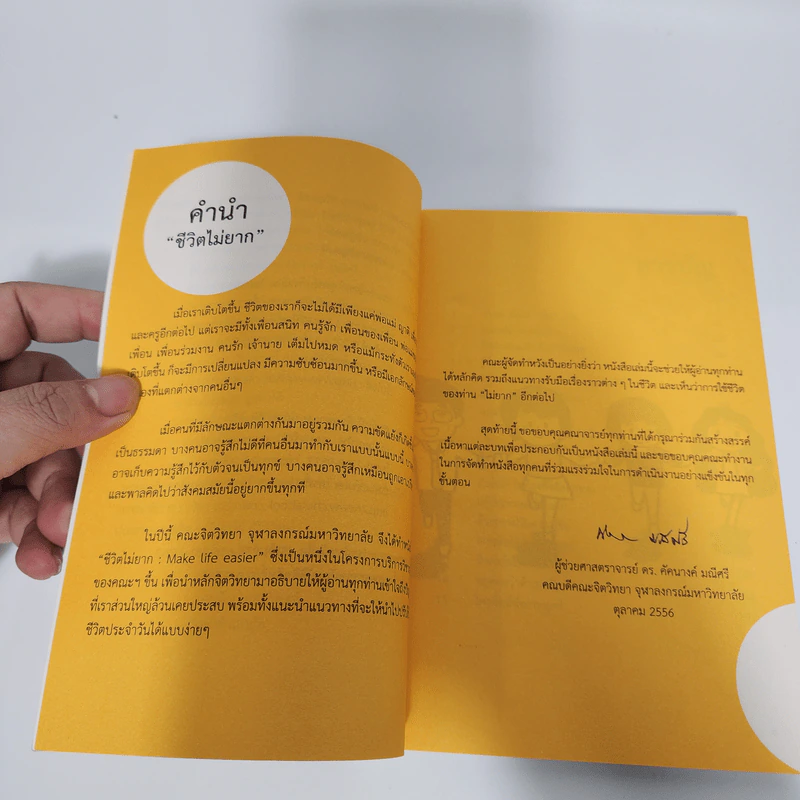 คำนำ
“ชีวิตไม่ยาก”
เมื่อเราเติบโตขึ้น ชีวิตของเราก็จะไม่ได้มีเพียงแค่พ่อแม่ ญาติ
และครูอีกต่อไป แต่เราจะมีทั้งเพื่อนสนิท คนรู้จัก เพื่อนของเพื่อน
เพื่อน เพื่อนร่วมงาน คนรัก เจ้านาย เต็มไปหมด หรือแม้กระทั่งตัวเรา
เติบโตขึ้น ก็จะมีการเปลี่ยนแปลง มีความซับซ้อนมากขึ้น หรือมีเอกลักษณ์
ที่แตกต่างจากคนอื่นๆ
เมื่อคนที่มีลักษณะแตกต่างกันมาอยู่ร่วมกัน ความขัดแย้งก็
เป็นธรรมดา บางคนอาจรู้สึกไม่ดีที่คนอื่นมาทำกับเราแบบนั้นแบบนี้
อาจเก็บความรู้สึกไว้กับตัวจนเป็นทุกข์ บางคนอาจรู้สึกเหมือนถูก
และพาลคิดไปว่าสังคมสมัยนี้อยู่ยากขึ้นทุกที
ในปีนี้ คณะจิตวิทยา จุฬาลงกรณ์มหาวิทยาลัย จึงได้ทำ
“ชีวิตไม่ยาก : Make life easier” ซึ่งเป็นหนึ่งในโครงการบริการ
ของคณะฯ ขึ้น เพื่อนำหลักจิตวิทยามาอธิบายให้ผู้อ่านทุกท่านเข้าใจถึง
ที่เราส่วนใหญ่ล้วนเคยประสบ พร้อมทั้งแนะนำแนวทางที่จะให้นำไป
ชีวิตประจำวันได้แบบง่ายๆ
คณะผู้จัดทำหวังเป็นอย่างยิ่งว่า หนังสือเล่มนี้จะช่วยให้ผู้อ่านทุกท่าน
ได้หลักคิด รวมถึงแนวทางรับมือเรื่องราวต่าง ๆ ในชีวิต และเห็นว่าการใช้ชีวิต
ของท่าน “ไม่ยาก” อีกต่อไป
สุดท้ายนี้ ขอขอบคุณคณาจารย์ทุกท่านที่ได้กรุณาร่วมกันสร้างสรรค์
เนื้อหาแต่ละบทเพื่อประกอบกันเป็นหนังสือเล่มนี้ และขอขอบคุณคณะทำงาน
ในการจัดทำหนังสือทุกคนที่ร่วมแรงร่วมใจในการดำเนินงานอย่างแข็งขันในทุก
ขั้นตอน
ผู้ช่วยศาสตราจารย์ ดร. คัคนางค์ มณีศรี
คณบดีคณะจิตวิทยา จุฬาลงกรณ์มหาวิทยาลัย
ตุลาคม 2556